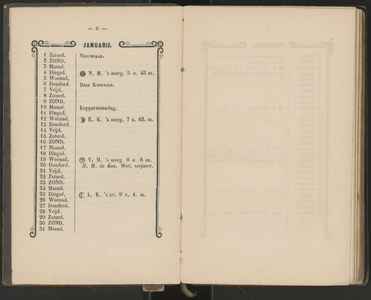 — 8 —
JANUARIJ.
1 Zaturd. Nieuwjaar.
2 ZOND.
3 Maand.
4 Dingsd. N. M. 's morg. 5 u. 43 m.
5 Woensd.
6 Donderd. Drie Koningen.
7 Vrijd.
8 Zaturd.
9 ZOND.
10 Maand. Koppermaandag.
11 Dingsd.
12 Woensd. E. K. 's morg. 7 u. 42. m.
13 Donderd.
14 Vrijd.
15 Zaturd.
16 ZOND.
17 Maand.
18 Dingsd.
19 Woensd. V. M. 's morg. 0 u. 8 m.
20 Donderd. H. M. de Kon. Wed. verjaart.
21 Vrijd.
22 Zaturd.
23 ZOND.
24 Maand.
25 Dingsd. L. K. 's av. 9 u. 4. m.
26 Woensd.
27 Donderd.
28 Vrijd
29 Zaturd.
30 ZOND.
31 Maand.